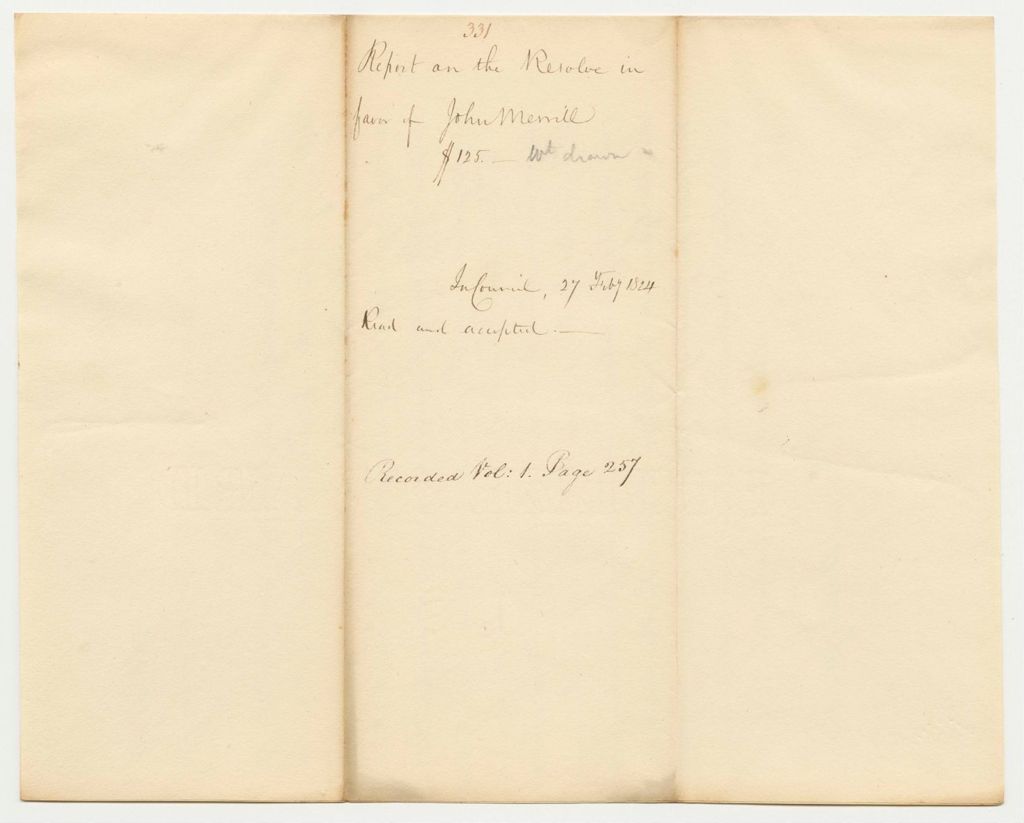 331
Report on the Resolve in
favor of John Merrill
$125. — Wt drawn -
In Council, 27 Feby 1824
Read and accepted. —
Recorded Vol: 1. Page 257